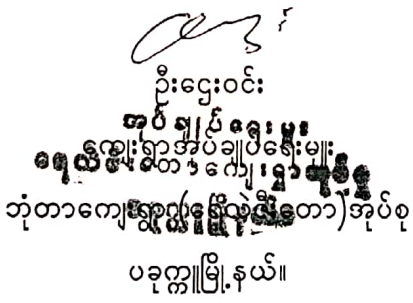 ဦးဌေးဝင်း
အုပ်ချုပ်ရေးမှူး
ကျေးရွာအုပ်ချုပ်ရေးမှူး
ဘုံတာကျေးရွာ အုပ်စု
ပခုက္ကူမြို့နယ်။